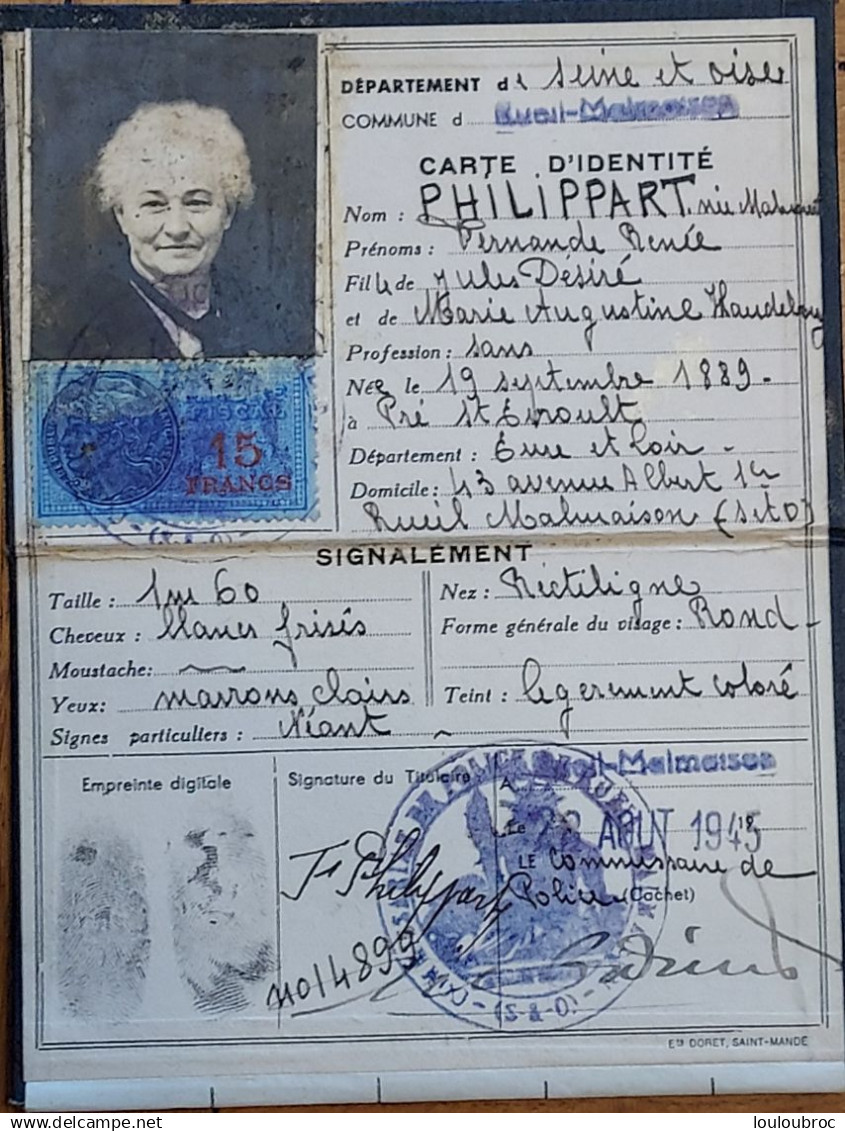 DÉPARTEMENT de Seine et Oise
COMMUNE d Rueil-Malmaison
CARTE D'IDENTITÉ
Nom : PHILIPPART née
Prénoms : Fernande Renée
Fille de Jules Désiré
et de Marie Augustine
Profession : sans
Née le 19 septembre 1889 -
à Pré St Evroult
Département : Eure et Loir -
Domicile : 43 avenue Albert 1er
Rueil Malmaison (S et O)
FISCAL
15
FRANCS
(S & O)
SIGNALEMENT
Taille : 1m 60
Cheveux : blancs frisés
Moustache :
Yeux : marrons clairs
Signes particuliers : Néant
Nez : Rectiligne
Forme générale du visage : Rond -
Teint : légèrement coloré
Empreinte digitale
Signature du Titulaire
F Philippart
No 14899
A Rueil-Malmaison
Le 22 AOUT 1945
19
LE Commissaire de
Police (Cachet)
(S-&-O)
Ets DORET, SAINT-MANDÉ
louloubroc